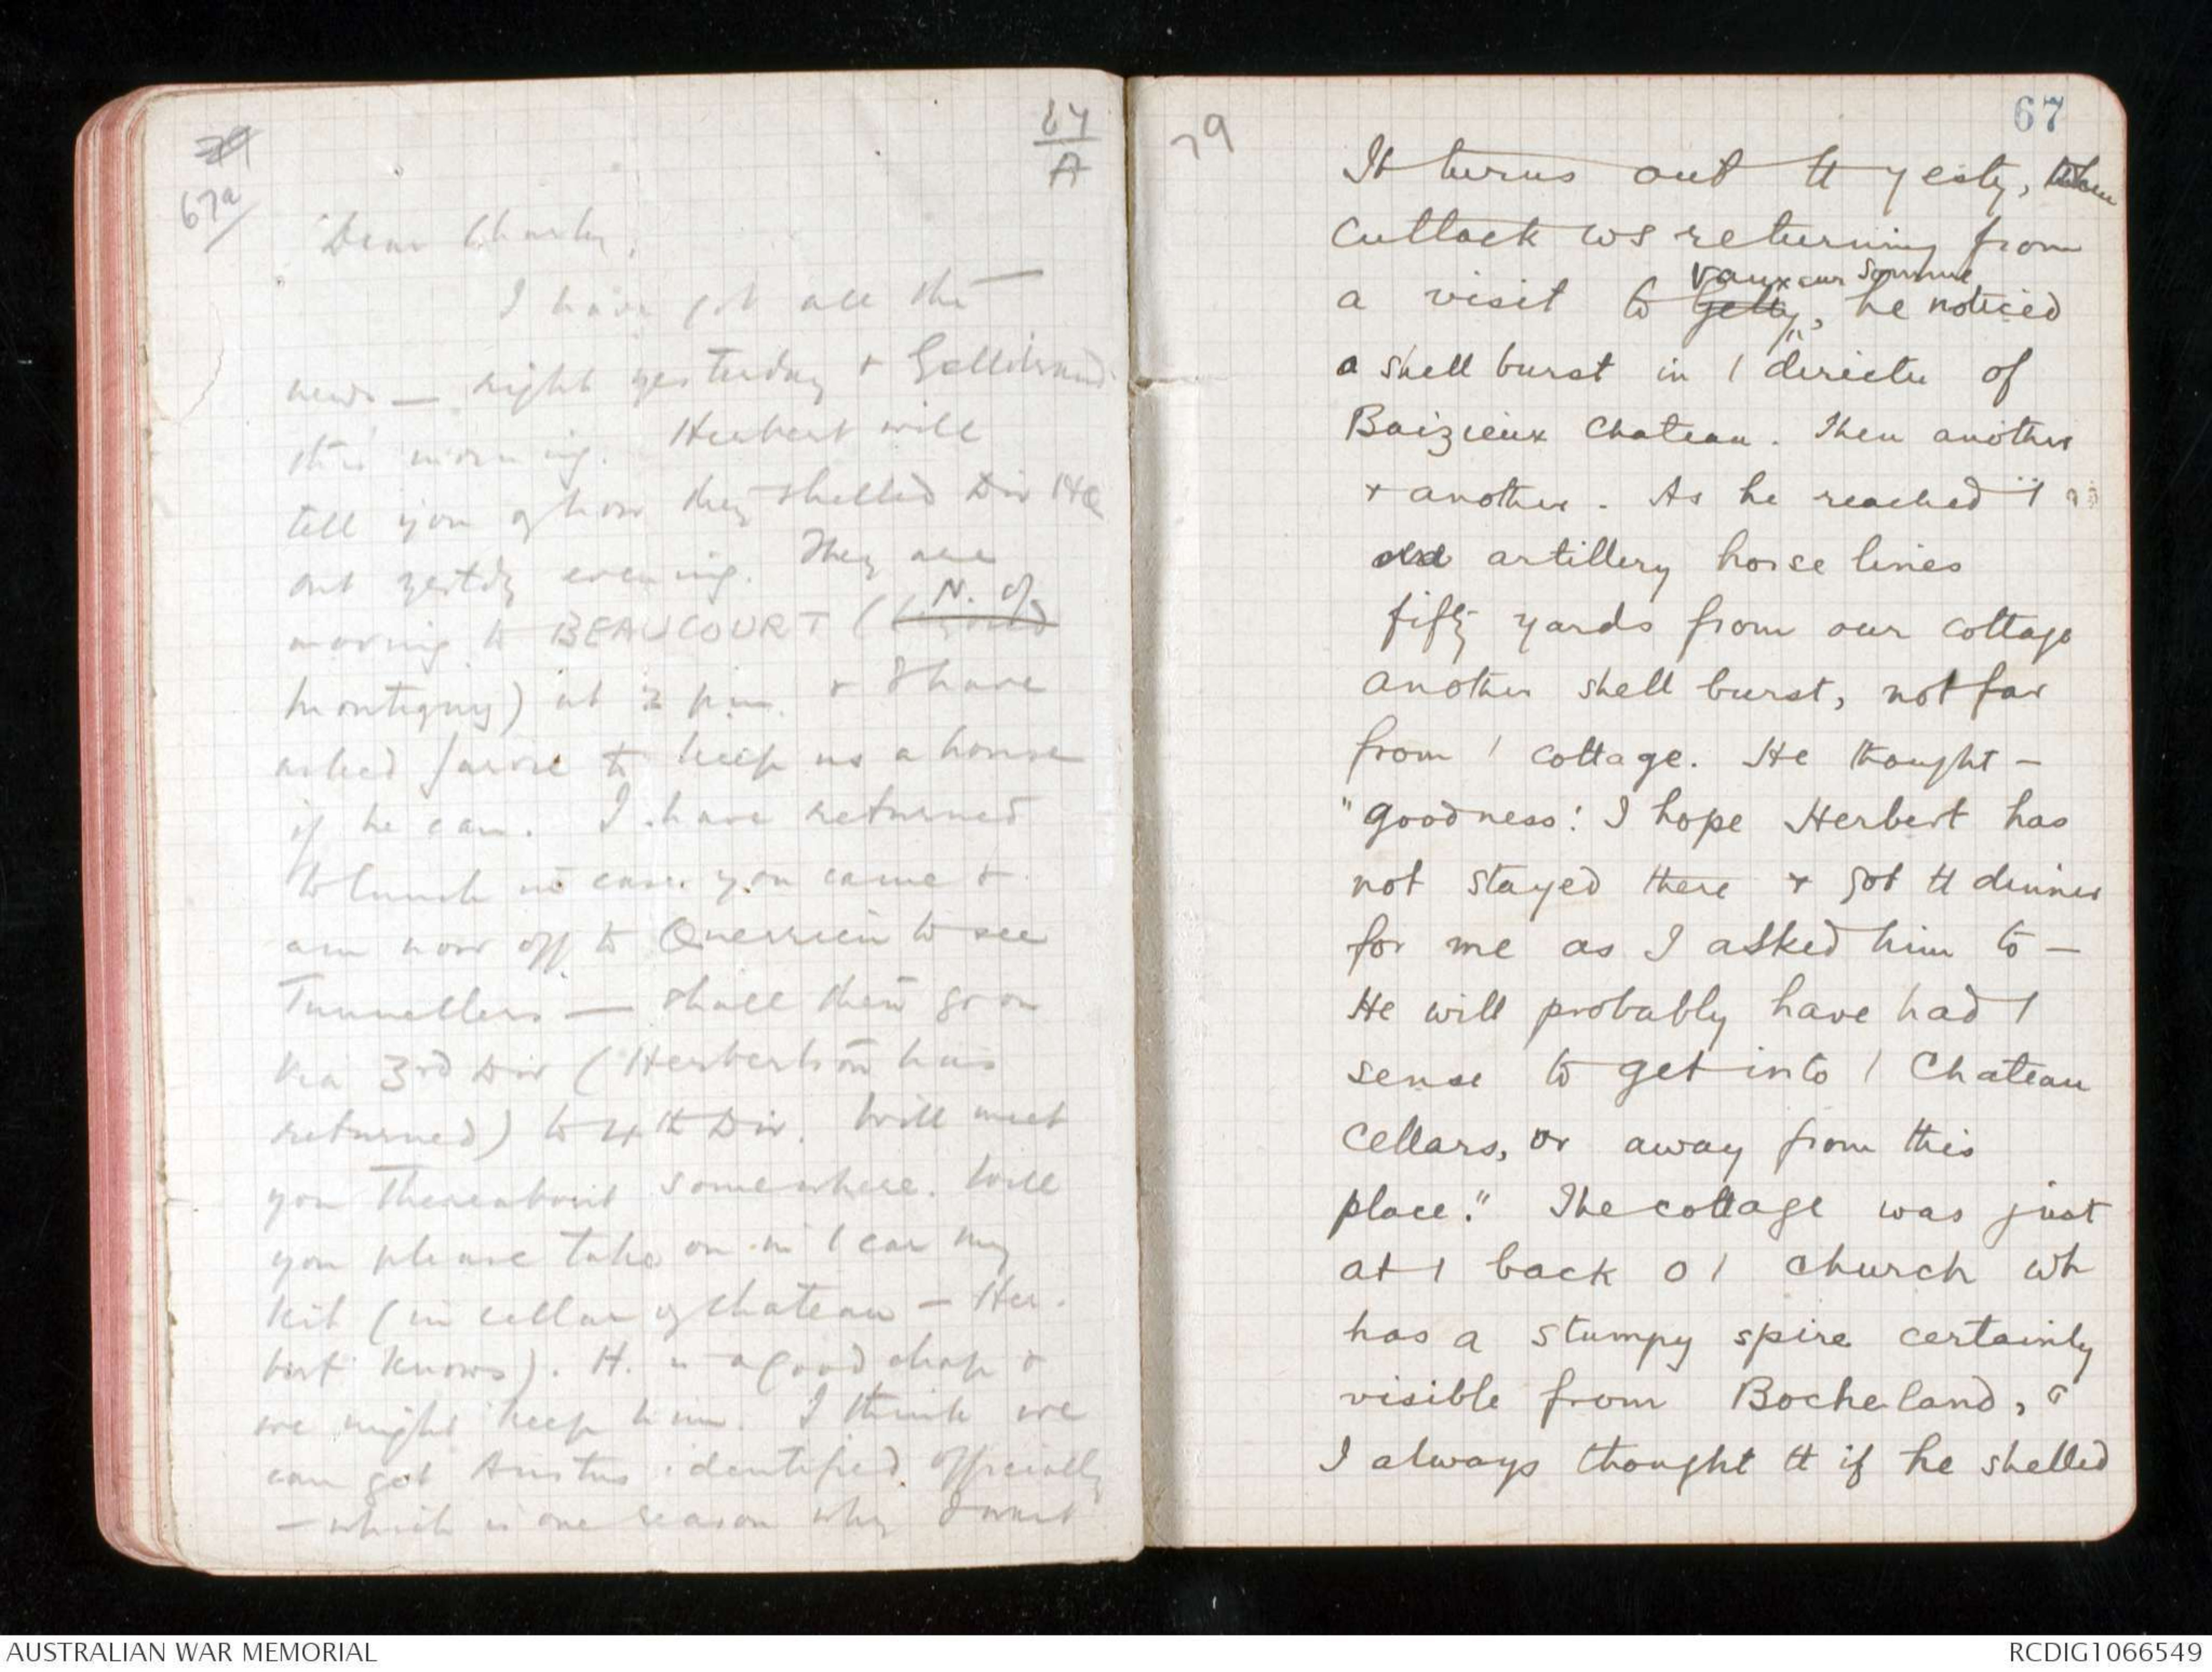 67
A
67a
Dear Charley,
I have got all the
news — right yesterday + Gellibrand
this morning. Herbert will
tell you of how they shelled Div HQ
out yestdy evening. They are
N. of
moving to BEAUCOURT (beyond
Montigny) at 2 pm. + I have
asked to keep us a house
if he can. I have returned
to lunch in case you came +
am now off to Querrieu to see
Tunnellers — shall then go on
via 3rd Div (Herbertson has
returned) to 4th Div. Will meet
you thereabout somewhere. Will
you please take on in / car my
kit (in cellar of chateau — Her-
bert knows). H. is a good chap +
we might keep him. I think we
can get identified officially
— which is one reason why I want
79
67
It turns out tt yesty, when
Cutlack ws returning from
Vaux sur Somme
a visit to Gelly, he noticed
a shell burst in / directn of
Baizieux Chateau. Then another
+ another. As he reached /
old artillery horse lines
fifty yards from our cottage
another shell burst, not far
from / cottage. He thought —
"goodness! I hope Herbert has
not stayed there + got tt dinner
for me as I asked him to —
He will probably have had /
sense to get into / Chateau
cellars, or away from this
place." The cottage was just
at / back o / church wh
has a stumpy spire certainly
visible from Bocheland, &
I always thought tt if he shelled
AUSTRALIAN WAR MEMORIAL
RCDIG1066549